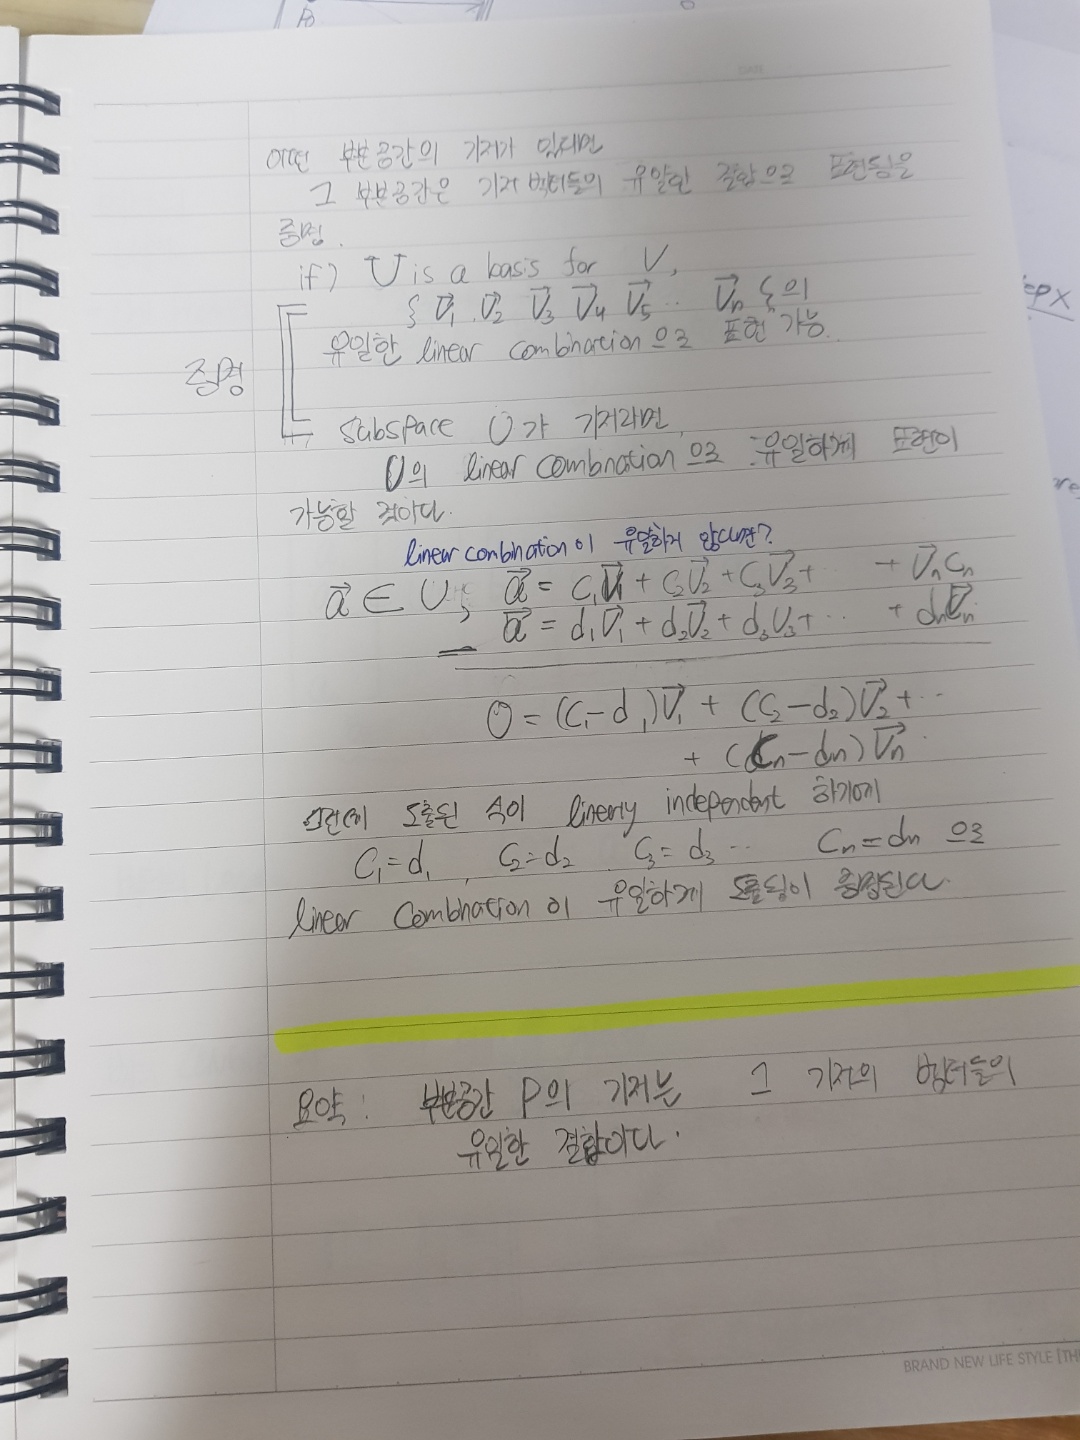 어떤 부분공간의 기저가 있다면
그 부분공간은 기저 벡터들의 유일한 결합으로 표현됨을
증명.
if) U is a basis for V,
{ v₁ v₂ v₃ v₄ v₅ ·· vₙ }의
유일한 linear combination으로 표현 가능.
증명
subspace U가 기저라면
U의 linear combnation으로 유일하게 표현이
가능할 것이다.
linear combination이 유일하지 않다면?
a⃗ ∈ U; a⃗ = c₁v⃗₁ + c₂v⃗₂ + c₃v⃗₃ + ·· + v⃗ₙcₙ
— a⃗ = d₁v⃗₁ + d₂v⃗₂ + d₃v₃ + ·· + dₙv⃗ₙ
0 = (c₁-d₁)v⃗₁ + (c₂-d₂)v⃗₂ + ··
+ (cₙ-dₙ)v⃗ₙ
도출된 식이 linerly independent 하기에
c₁=d₁, c₂=d₂ c₃=d₃ ·· cₙ=dₙ 으로
linear combination이 유일하게 도출됨이 증명된다.
요약: 부분공간 P의 기저는 그 기저의 벡터들의
유일한 결합이다.
BRAND NEW LIFE STYLE [TH